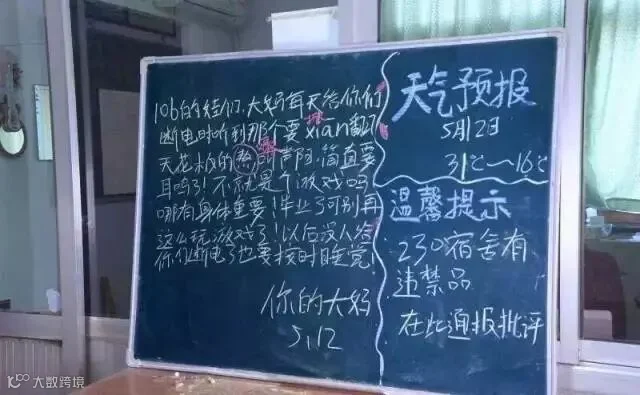 106的娃们,大妈每天给你们
断电时听到那个要xian翻
天花板的叫声阿,简直要
耳鸣了!不就是个游戏吗
哪有身体重要!毕业了可别再
这么玩游戏了!以后没人给
你们断电了也要按时睡觉!
你的大妈
5.12
天气预报
5月12日
31℃～16℃
温馨提示
230宿舍有
违禁品
在此通报批评
大数跨境